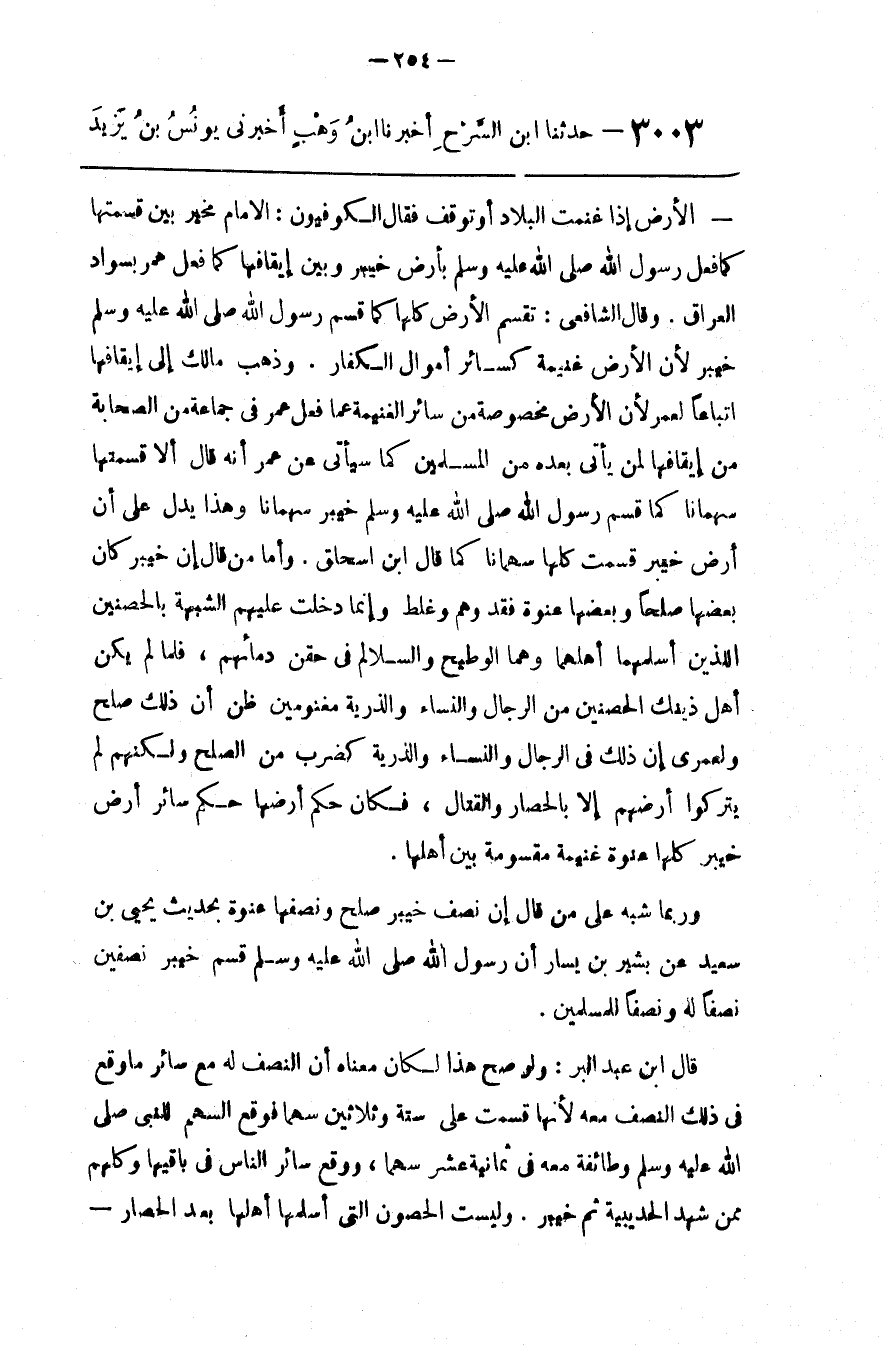 — ٢٥٤ —
٣٠٠٣ — حدثنا ابن السَّرْحِ أخبرنا ابنُ وَهْبٍ أَخبرنى يونُسُ بنُ يَزيدَ
— الأرض إذا غنمت البلاد أو توقف فقال الكوفيون : الامام مخير بين قسمتها
كما فعل رسول الله صلى الله عليه وسلم بأرض خيبر وبين إيقافها كما فعل عمر بسواد
العراق . وقال الشافعى : تقسم الأرض كلها كما قسم رسول الله صلى الله عليه وسلم
خيبر لأن الأرض غنيمة كسائر أموال الكفار . وذهب مالك إلى إيقافها
اتباعاً لعمر لأن الأرض مخصوصة من سائر الغنيمة عما فعل عمر فى جماعة من الصحابة
من إيقافها لمن يأتى بعده من المسلمين كما سيأتى عن عمر أنه قال ألا قسمتها
سهمانا كما قسم رسول الله صلى الله عليه وسلم خيبر سهمانا وهذا يدل على أن
أرض خيبر قسمت كلها سهمانا كما قال ابن اسحاق . وأما من قال إن خيبر كان
بعضها صلحاً وبعضها عنوة فقد وهم وغلط وإنما دخلت عليهم الشبهة بالحصنين
اللذين أسلمهما أهلهما وهما الوطيح والسلالم فى حقن دمائهم ، فلما لم يكن
أهل ذينك الحصنين من الرجال والنساء والذرية مغنومين ظن أن ذلك صلح
ولعمرى إن ذلك فى الرجال والنساء والذرية كضرب من الصلح ولكنهم لم
يتركوا أرضهم إلا بالحصار والقتال ، فكان حكم أرضها حكم سائر أرض
خيبر كلها عنوة غنيمة مقسومة بين أهلها .
وربما شبه على من قال إن نصف خيبر صلح ونصفها عنوة بحديث يحيى بن
سعيد عن بشير بن يسار أن رسول الله صلى الله عليه وسلم قسم خيبر نصفين
نصفاً له ونصفاً للمسلمين .
قال ابن عبد البر : ولو صح هذا لكان معناه أن النصف له مع سائر ما وقع
فى ذلك النصف معه لأنها قسمت على ستة وثلاثين سهما فوقع السهم للنبى صلى
الله عليه وسلم وطائفة معه فى ثمانية عشر سهما ، ووقع سائر الناس فى باقيها وكلهم
ممن شهد الحديبية ثم خيبر . وليست الحصون التى أسلمها أهلها بعد الحصار —